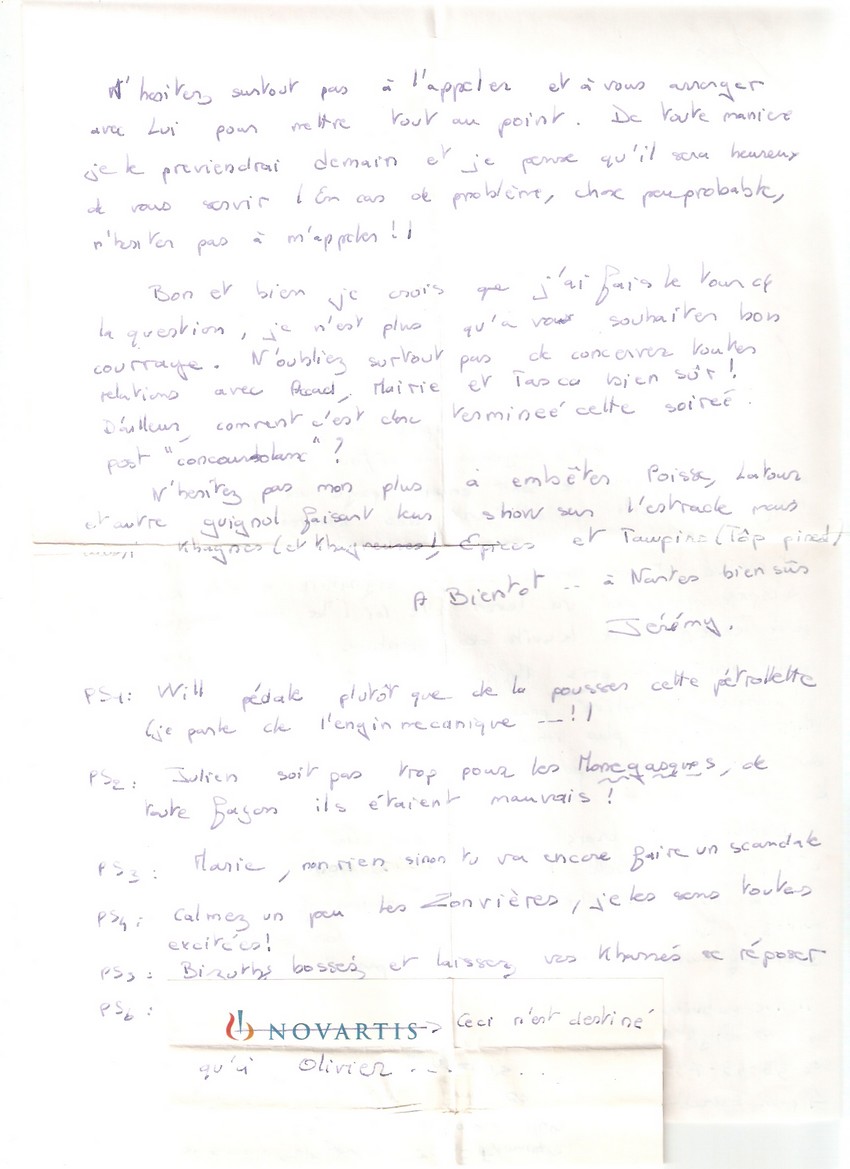 N'hesitez surtout pas à l'appeler et à vous arranger
avec Lui pour mettre tout au point. De toute manière
je le previendrai demain et je pense qu'il sera heureux
de vous servir ! En cas de problème, chose peu probable,
n'hesiter pas à m'appeler !!
Bon et bien je crois que j'ai fais le tour de
la question, je n'est plus qu'a vous souhaiter bon
courrage. N'oubliez surtout pas de concervez toutes
relations avec Read, Mairie et Tasca bien sûr !
D'ailleur, comment c'est donc termineé cette soireé.
post "concoursolanx" ?
N'hesitez pas non plus à embêter Poisse, Latour
et autre guignol faisant leur show sur l'estrade mais
Khagnes (et Khagneuses), Epices et Taupins (Tôp pines)
A Bientot -- à Nantes bien sûr
Jérémy.
PS1: Will pédale plutôt que de la pousser cette pétrollette
(je parle de l'engin mecanique ---!!
PS2: Julien soit pas trop pour les Monegasques, de
toute façon ils étaient mauvais !
PS3: Marie, non rien, sinon tu va encore faire un scandale
PS4: Calmez un peu les Zonvières, je les sens toutes
excitées!
PS5: Bizuths bossés, et laissez vos Kharrés se réposer
PS6: NOVARTIS -> Ceci n'est destiné
qu'à Olivier ....